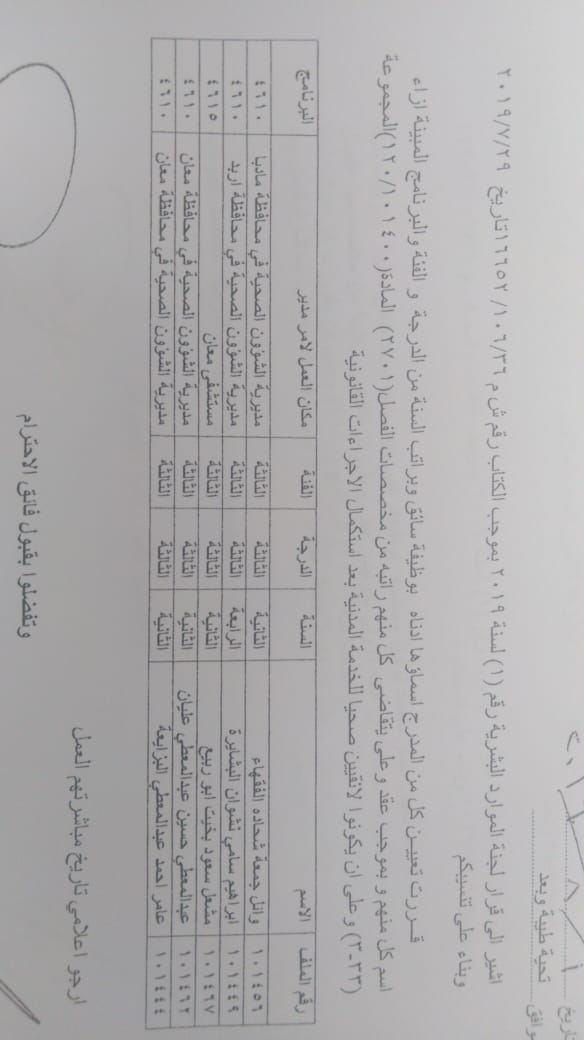 تاريخ
وافق
تحية طيبة وبعد
اشير الى قرار لجنة الموارد البشرية رقم (١) لسنة ٢٠١٩ بموجب الكتاب رقم ش م ١٦٦٥٢/١٠٦/٣٦ تاريخ ٢٠١٩/٧/٢٩
وبناء على تنسيبكم
قررت تعيين كل من المدرج اسماؤها ادناه بوظيفة سائق وبراتب السنة من الدرجة و الفئة والبرنامج المبينة ازاء
اسم كل منهم و بموجب عقد وعلى يتقاضى كل منهم راتبه من مخصصات الفصل(٢٧٠١) المادة(١٢٠/١٠١٤٠٠)المجموعة
(٣-٣٣) وعلى ان يكونوا لائقين صحيا للخدمة المدنية بعد استكمال الاجراءات القانونية
رقم الملف الاسم السنة الدرجة الفئة مكان العمل لامر مدير البرنامج
١٠١٤٥٦ وائل جمعة شحاده الفقهاء الثانية الثالثة الثالثة مديرية الشؤون الصحية في محافظة مادبا ٤٦١٠
١٠١٤٤٩ ابراهيم سامي نشوان البشايرة الرابعة الثالثة الثالثة مديرية الشؤون الصحية في محافظة اربد ٤٦١٠
١٠١٤٦٧ مشعل سعود بخيت ابو ربيع الثانية الثالثة الثالثة مستشفى معان ٤٦١٥
١٠١٤٦٢ عبدالمعطي حسين عبدالمعطي عليان الثانية الثالثة الثالثة مديرية الشؤون الصحية في محافظة معان ٤٦١٠
١٠١٤٤٤ عامر احمد عبدالمعطي البزايعة الثانية الثالثة الثالثة مديرية الشؤون الصحية في محافظة معان ٤٦١٠
ارجو اعلامي تاريخ مباشرتهم العمل
وتفضلوا بقبول فائق الاحترام